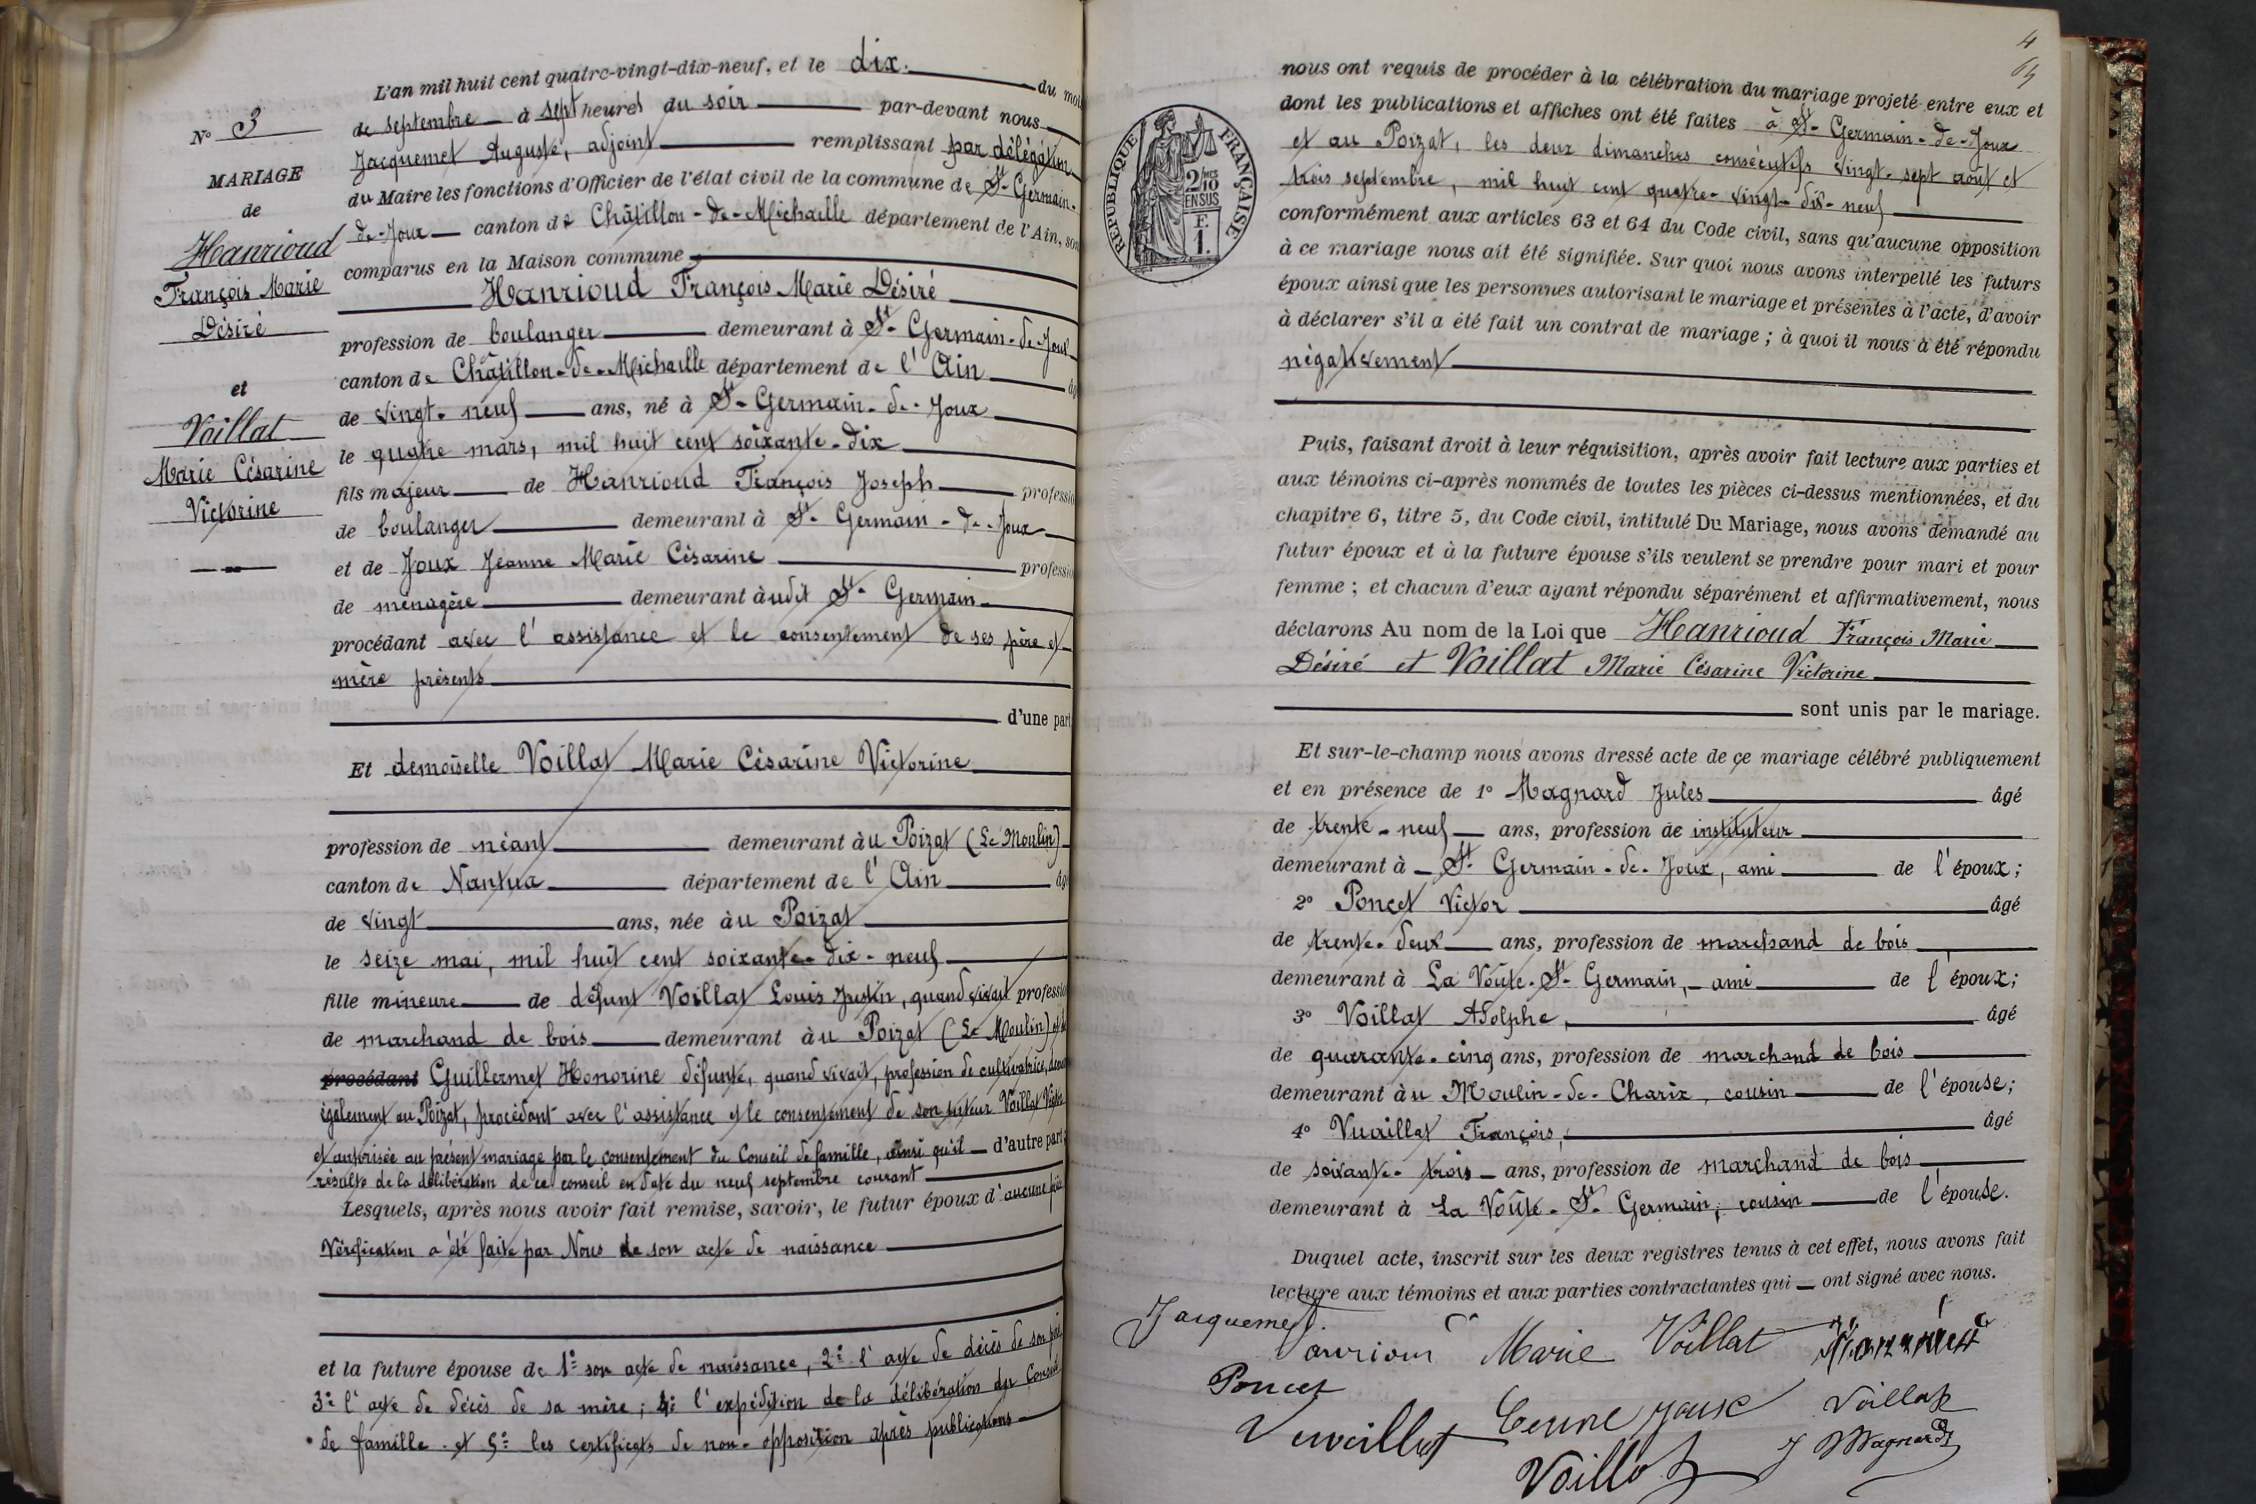 L'an mil huit cent quatre-vingt-dix-neuf, et le dix. du mois
de septembre à sept heures du soir par-devant nous
Jacquemet Auguste, adjoint remplissant par délégation
du Maire les fonctions d'Officier de l'état civil de la commune de St-Germain-
de-Joux canton de Châtillon-de-Michaille département de l'Ain, sont
comparus en la Maison commune
Hanrioud François Marie Désiré
profession de boulanger demeurant à St-Germain-de-Joux
canton de Châtillon-de-Michaille département de l'Ain âgé
de vingt-neuf ans, né à St-Germain-de-Joux
le quatre mars, mil huit cent soixante-dix
fils majeur de Hanrioud François Joseph profession
de boulanger demeurant à St-Germain-de-Joux
et de Joux Jeanne Marie Césarine profession
de ménagère demeurant àudit St-Germain
procédant avec l'assistance et le consentement de ses père et
mère présents
d'une part
Et demoiselle Voillat Marie Césarine Victorine
profession de néant demeurant àu Poizat (Le Moulin)
canton de Nantua département de l'Ain âgé
de vingt ans, née àu Poizat
le seize mai, mil huit cent soixante-dix-neuf
fille mineure de défunt Voillat Louis Justin, quand vivait profession
de marchand de bois demeurant àu Poizat (Le Moulin) et de
procédant Guillermet Honorine défunte, quand vivait, profession de cultivatrice, demeurant
également au Poizat, procédant avec l'assistance et le consentement de son tuteur Voillat
et autorisée au présent mariage par le consentement du Conseil de famille, ainsi qu'il d'autre part
résulte de la délibération de ce conseil en date du neuf septembre courant
Lesquels, après nous avoir fait remise, savoir, le futur époux d'aucune pièce
Vérification a été faite par Nous de son acte de naissance
et la future épouse de 1° son acte de naissance, 2° l'acte de décès de son père
3° l'acte de décès de sa mère; 4° l'expédition de la délibération du Conseil
de famille et 5° les certificats de non-opposition après publications
N° 3
MARIAGE
de
Hanrioud
François Marie
Désiré
et
Voillat
Marie Césarine
Victorine
4
RÉPUBLIQUE FRANÇAISE
2/10MES
EN SUS
F.
1.
nous ont requis de procéder à la célébration du mariage projeté entre eux et
dont les publications et affiches ont été faites à St-Germain-de-Joux
et au Poizat, les deux dimanches consécutifs vingt-sept août et
trois septembre, mil huit cent quatre-vingt-dix-neuf
conformément aux articles 63 et 64 du Code civil, sans qu'aucune opposition
à ce mariage nous ait été signifiée. Sur quoi nous avons interpellé les futurs
époux ainsi que les personnes autorisant le mariage et présentes à l'acte, d'avoir
à déclarer s'il a été fait un contrat de mariage; à quoi il nous a été répondu
négativement
Puis, faisant droit à leur réquisition, après avoir fait lecture aux parties et
aux témoins ci-après nommés de toutes les pièces ci-dessus mentionnées, et du
chapitre 6, titre 5, du Code civil, intitulé Du Mariage, nous avons demandé au
futur époux et à la future épouse s'ils veulent se prendre pour mari et pour
femme; et chacun d'eux ayant répondu séparément et affirmativement, nous
déclarons Au nom de la Loi que Hanrioud François Marie
Désiré et Voillat Marie Césarine Victorine
sont unis par le mariage.
Et sur-le-champ nous avons dressé acte de ce mariage célébré publiquement
et en présence de 1° Magnard Jules âgé
de trente-neuf ans, profession de instituteur
demeurant à St Germain-de-Joux, ami de l'époux;
2° Poncet Victor âgé
de trente-deux ans, profession de marchand de bois
demeurant à La Voûte-St-Germain, ami de l'époux;
3° Voillat Adolphe, âgé
de quarante-cinq ans, profession de marchand de bois
demeurant àu Moulin-de-Charix, cousin de l'épouse;
4° Vuaillat François, âgé
de soixante-trois ans, profession de marchand de bois
demeurant à La Voûte-St-Germain, cousin de l'épouse.
Duquel acte, inscrit sur les deux registres tenus à cet effet, nous avons fait
lecture aux témoins et aux parties contractantes qui ont signé avec nous.
Jacquemet
Marie Voillat
Poncet
Joux Voillat
J Magnard
Voillat